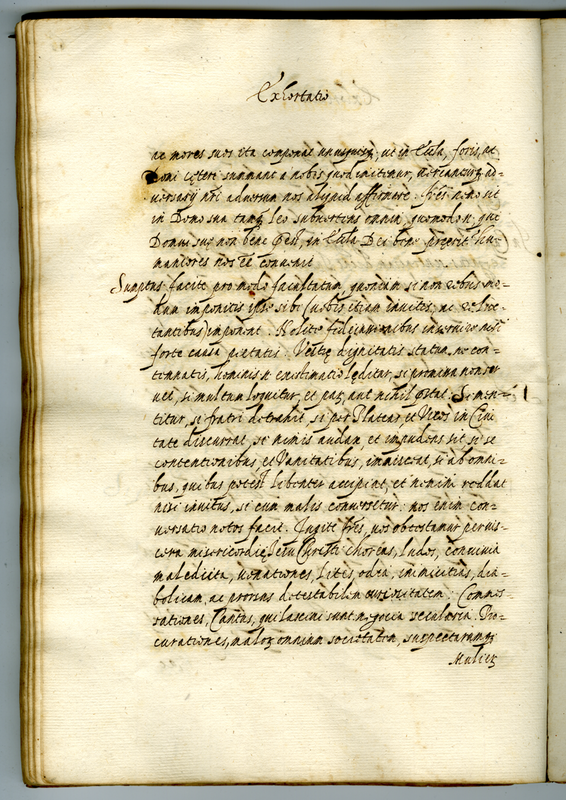 Exhortatio
ac mores suos ita componat unusquisq; ut in Eccl'ia, foris, ac
Domi cęteri sumant a nobis quod imitentur, adversarij n'ri adversum nos aliquid
versarij n'ri adversum nos aliquid affirmare. Fr'es nemo sit
in Domo sua tanq; leo subvertens omnia, quomodo n. qui
Domui suę non bene pręest, in Eccl'ia Dei bene pręerit
maniores nos e'e convenit
Sumptus facite pro modo facultatum, quoniam si non vobis
impositis ipse sibi (vobis etiam invitis, ac
tantibus) imponat. Nolite
forte causa pietatis. Vestrę dignitatis statum ne con=
temnatis, hominis n. existimatio lęditur, si
vel, si multum loquitur, et parum aut nihil pręstat. Si men=
titur, si fratri detrahit, si per Plateas, et Vicos in Civi
tate discurrat, si nimis audax, et impudens sit si se
contentionibus, et Vanitatibus, immisceat, si ab omni=
bus, quibus potest libenter accipiat, et nemini reddat
nisi invitus, si cum malis conversetur: nos enim con=
versatio notos facit. Fr'es, vos obtestamur per vis=
cera misericordię Iesu Christi choreas, ludos, convivia
maledicta, venationes, lites, odia, inimicitias, dia=
bolicam, ac prorsus detestabilem curiositatem. Commes=
sationes, Cantus, qui lascivi sunt negocia secularia. Pro=
curationes, malorum omnium societatem, suspectarumq;
Mulierum